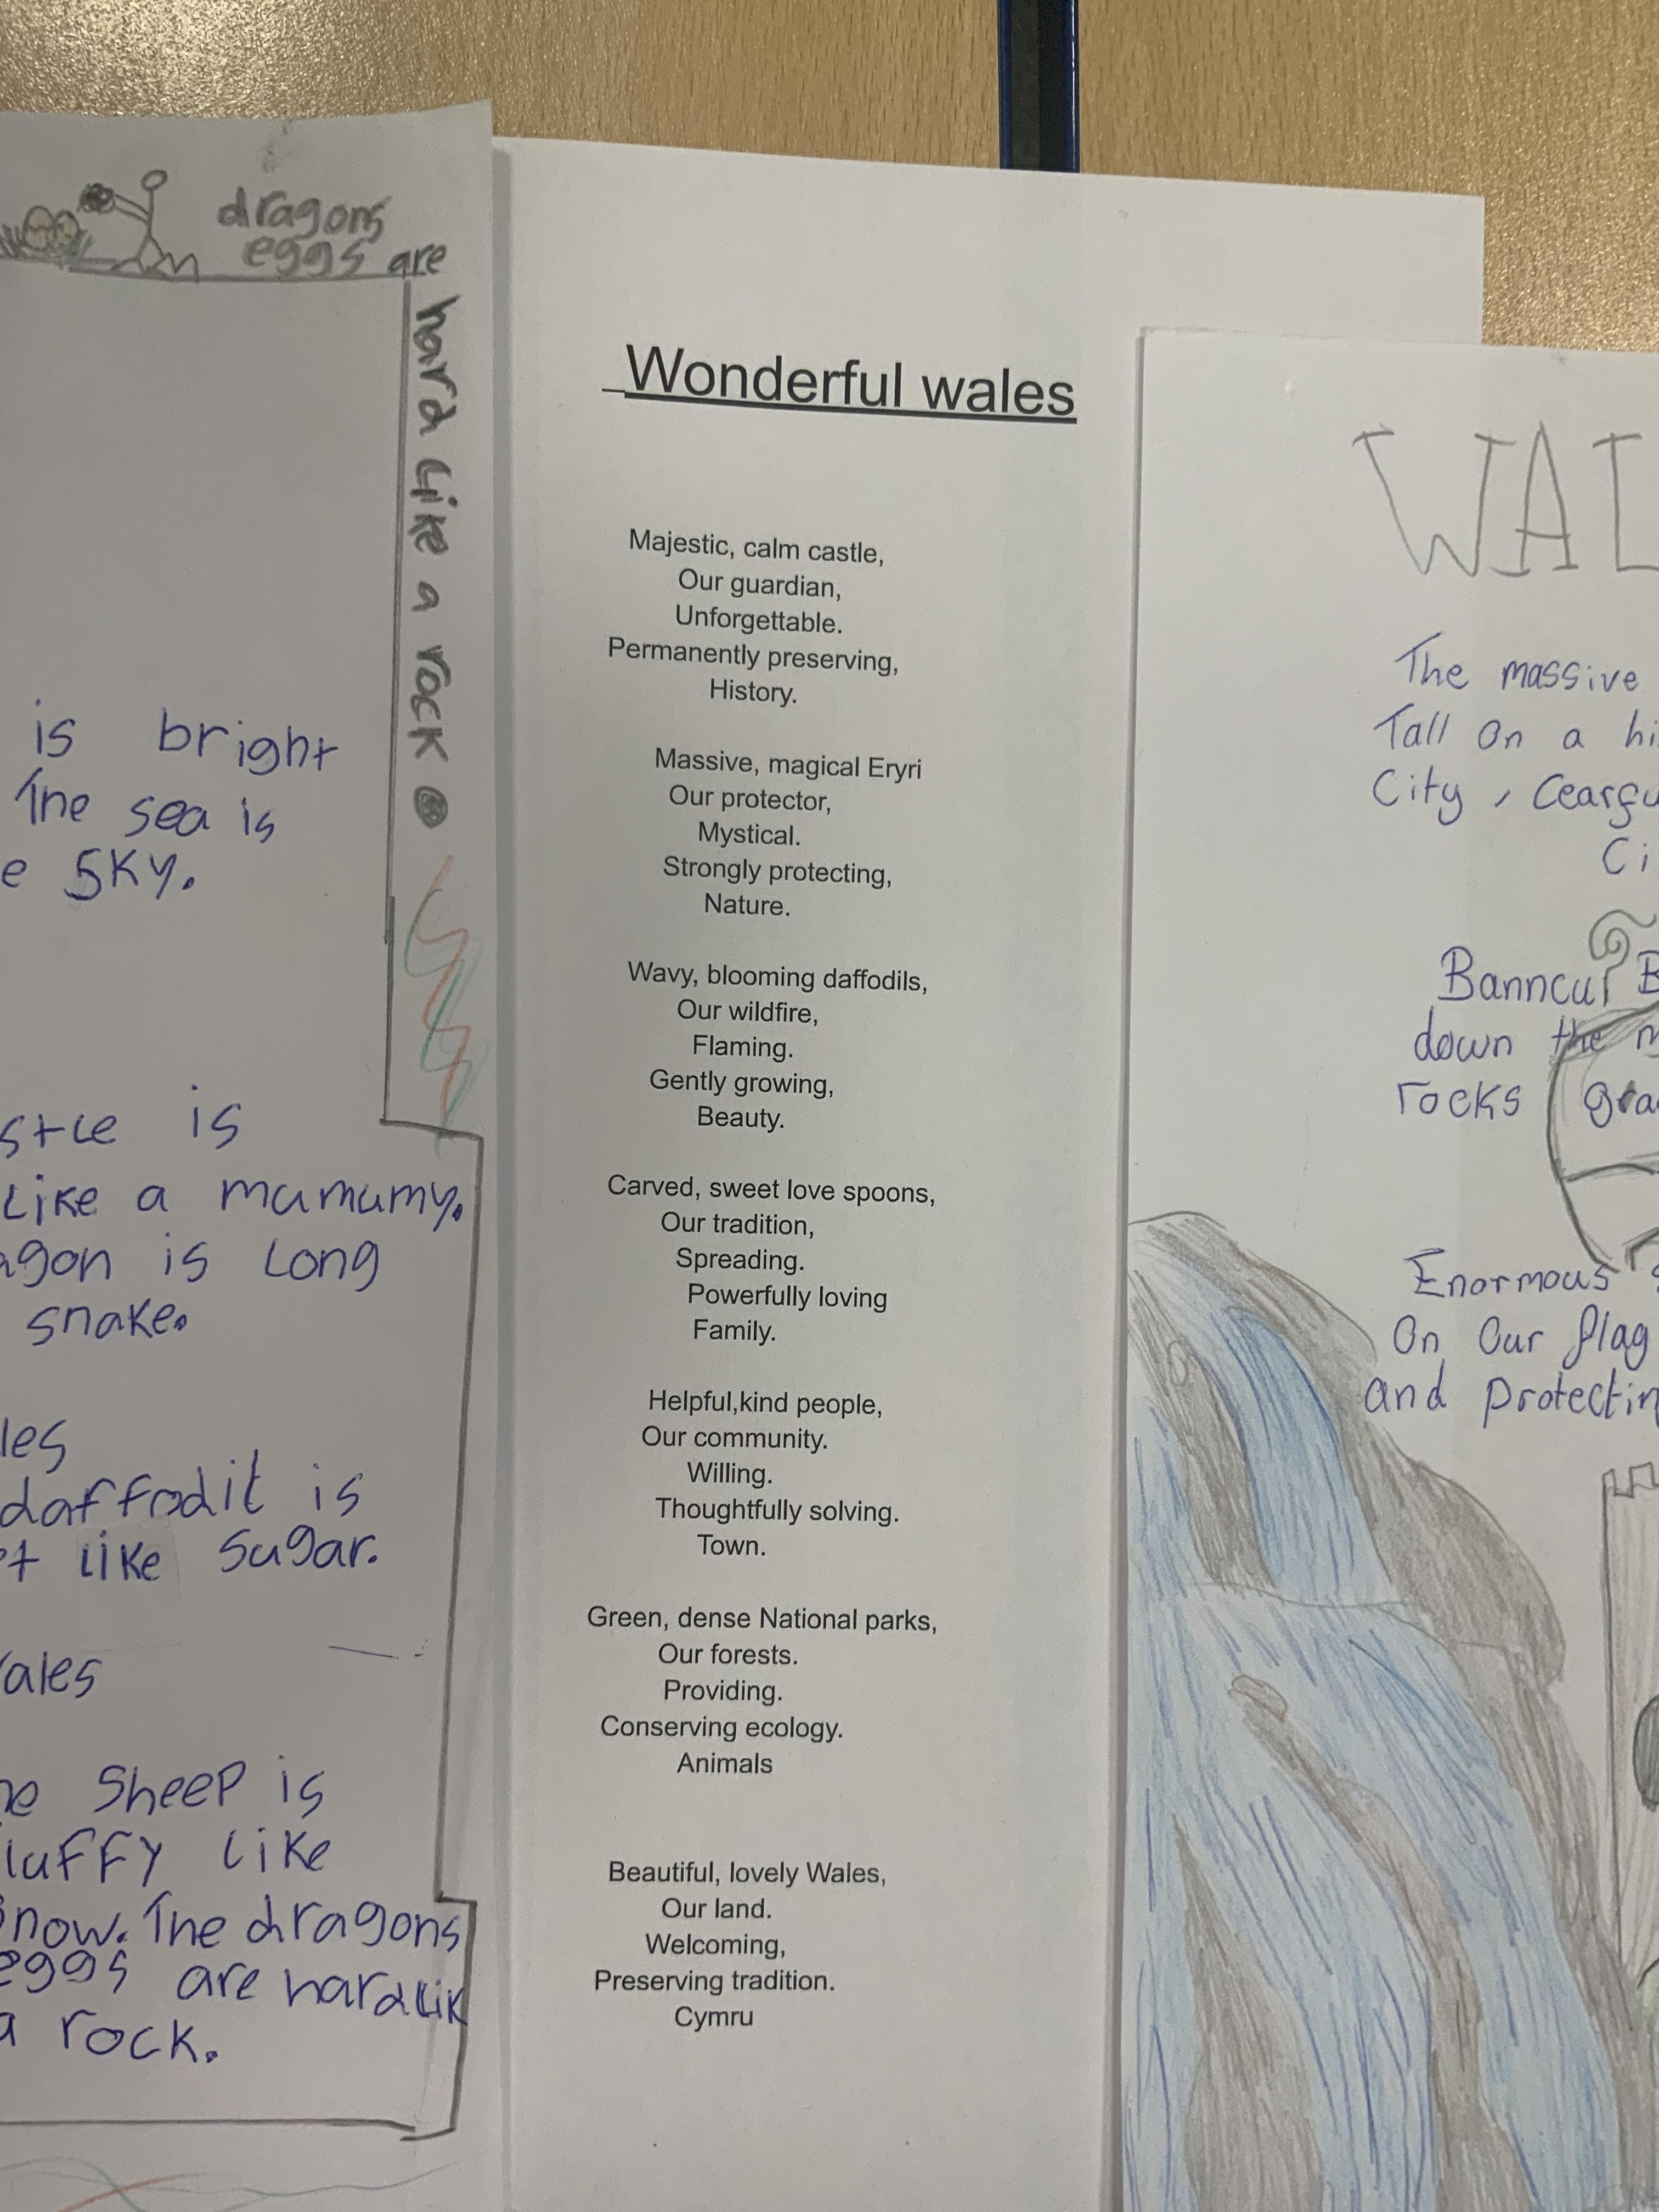 dragons
eggs are
hard like a rock
is bright
The sea is
e SKY.
stle is
Like a mumumy.
agon is Long
snake.
les
daffodil is
et like Sugar.
ales
he Sheep is
luffy like
Snow. The dragons
eggs are hard lik
a rock.
Wonderful wales
Majestic, calm castle,
Our guardian,
Unforgettable.
Permanently preserving,
History.
Massive, magical Eryri
Our protector,
Mystical.
Strongly protecting,
Nature.
Wavy, blooming daffodils,
Our wildfire,
Flaming.
Gently growing,
Beauty.
Carved, sweet love spoons,
Our tradition,
Spreading.
Powerfully loving
Family.
Helpful,kind people,
Our community.
Willing.
Thoughtfully solving.
Town.
Green, dense National parks,
Our forests.
Providing.
Conserving ecology.
Animals
Beautiful, lovely Wales,
Our land.
Welcoming,
Preserving tradition.
Cymru
WAL
The massive
Tall On a hi
City,
Ci
down the m
rocks gra
Enormous
On Our flag
and protectin